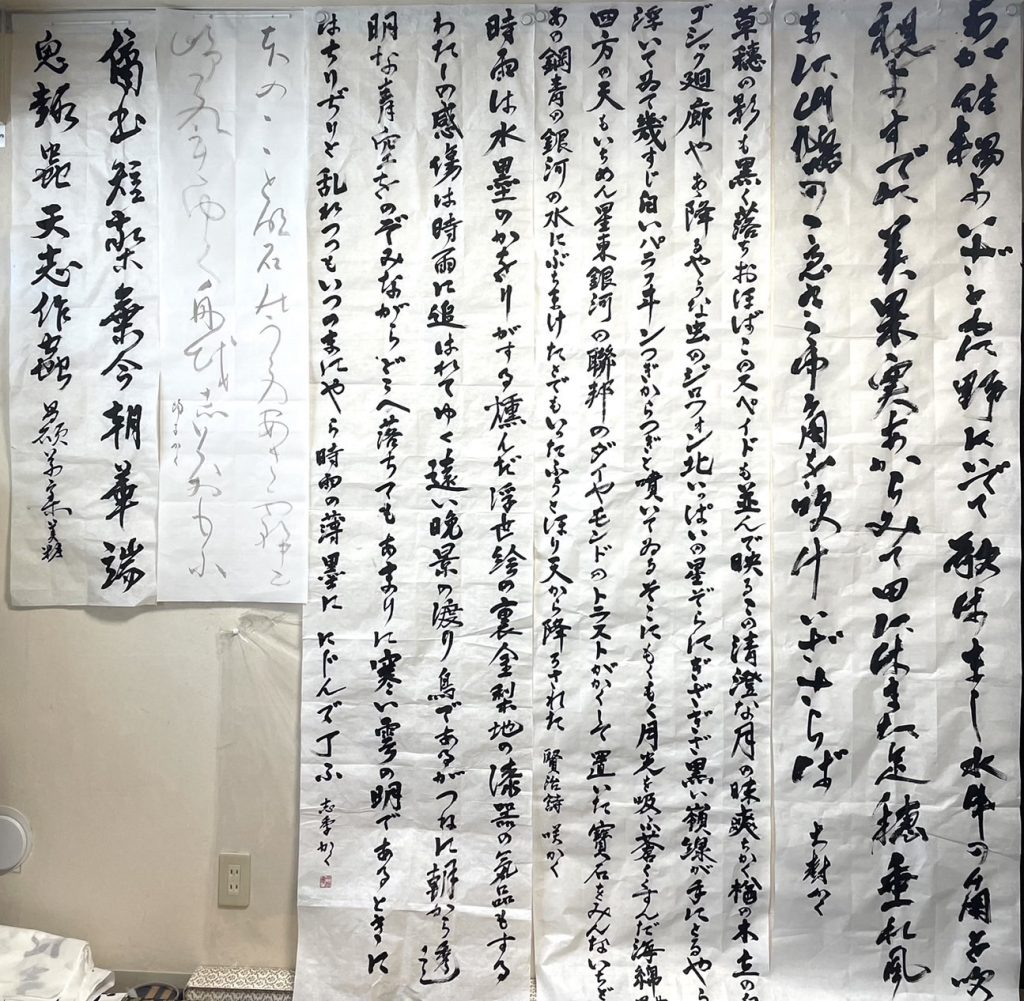 わが佳耦よいざともに野にいでて歌はまし水牛の角を吹
視よすでに美果実あからみて田にはまた足穂垂れ風
まに山鳩のこゑきこゆ角を吹け いざさらば
草穂の影も黒く落ちおほばこのスペイドも並んで映るこの清澄な月の昧爽ちかく楢の木立の白
ゴシック廻廊や降るやうな虫のジロフォン北いっぱいの星ぞらにぎざぎざ黒い嶺線が手にとるやう
浮いてゐて幾すじ白いパラフヰンつぎからつぎと噴いてゐるそこにもくもく月光を吸ふ蒼くすんだ海綿
四方の天もいちめん星東銀河の聯邦のダイヤモンドのトラストがかくして置いた寶石をみんないちど
あの鋼青の銀河の水にぶちまけたとでもいったふうとほり天から降ろされた 賢治詩 咲かく
時雨は水墨のかをりがする燻んだ浮世絵の裏金梨地の漆器の氣品もする
わたしの感傷は時雨に追はれてゆく遠い晩景の渡り鳥であるがつねに朝から透
明な青空をのぞみながらどこへ落ちてもあまりに寒い雲の明であるときに
はちりぢりと乱れつつもいつのまにやら時雨の薄墨に にじんで了ふ 志季かく
本の〳〵と明石能うらのあさ
ゆく舟
今朝華端
鬼趣 蟲天志作蟲